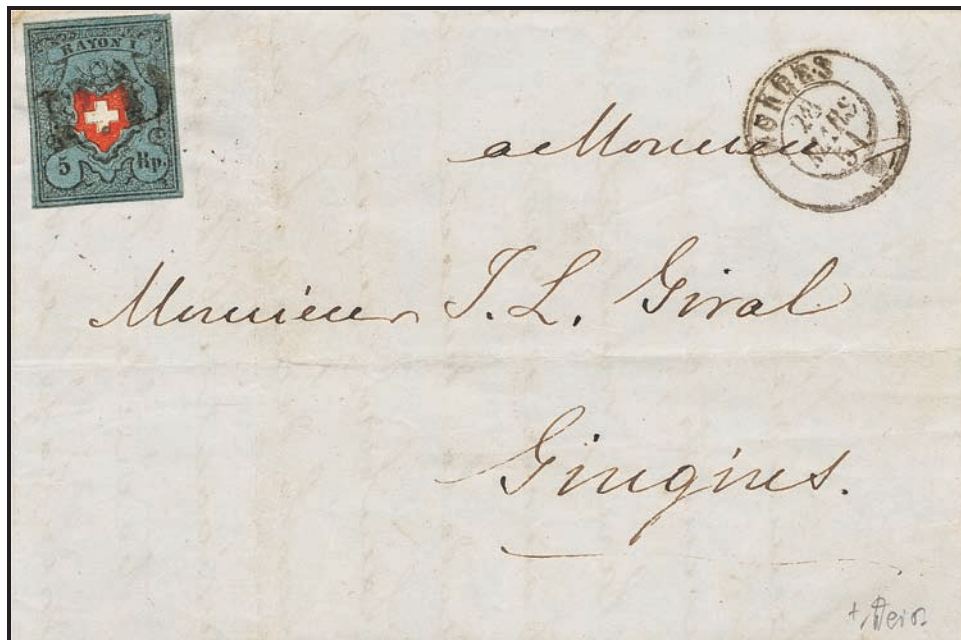 RAYON I
5 Rp.
MORGES
24
MARS
a Monsieur
Monsieur J. L. Gival
Gingins.